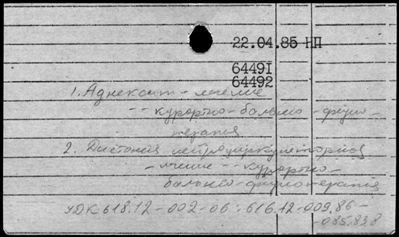 22.04.85 НП
64491
64492
1. Аднексит - лечение
-- курортно - бальнео - физио-
терапия
2. Дистония нейроциркуляторная
- лечение - курортно-
бальнео-физиотерапия
УДК 618.12-002-06:616.12-009.86-
-085.838